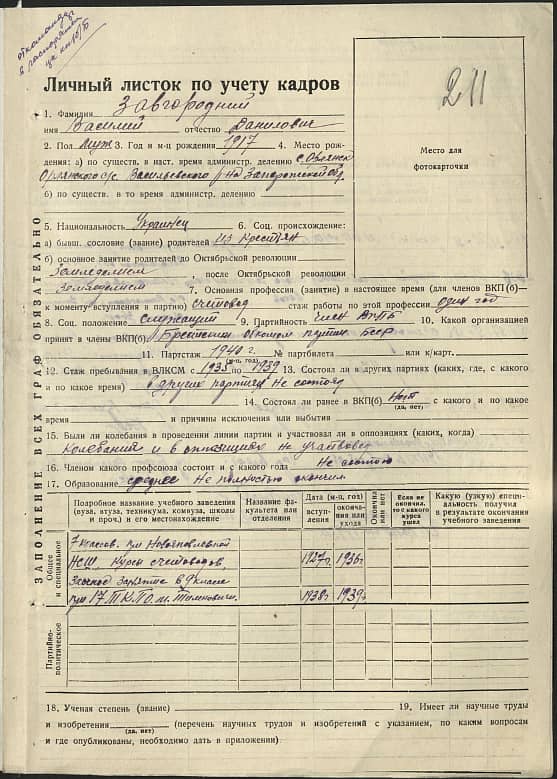 откомандир.
в распоряж.
цк кп(б)Б
Личный листок по учету кадров
211
Место для
фотокарточки
ЗАПОЛНЕНИЕ ВСЕХ ГРАФ ОБЯЗАТЕЛЬНО
1. Фамилия Завгородний
имя Василий отчество Данилович
2. Пол муж 3. Год и м-ц рождения 1917 4. Место рож-
дения: а) по существ. в наст. время администр. делению с.
Орлянского с/с. Васильевского р-на Запорожской обл.
б) по существ. в то время администр. делению
5. Национальность Украинец 6. Соц. происхождение:
а) бывш. сословие (звание) родителей из крестьян
б) основное занятие родителей до Октябрьской революции
Земледелием, после Октябрьской революции
Земледелием 7. Основная профессия (занятие) в настоящее время (для членов ВКП(б)—
к моменту вступления в партию) счетовод стаж работы по этой профессии один год
8. Соц. положение служащий 9. Партийность член ВКПб 10. Какой организацией
принят в члены ВКП(б) Брестским обкомом партии БССР
11. Партстаж 1940 г. № партбилета или к/карт.
(м-ц, год)
12. Стаж пребывания в ВЛКСМ с 1933 по 1939 13. Состоял ли в других партиях (каких, где, с какого
и по какое время) в других партиях не состоял
14. Состоял ли ранее в ВКП(б) Нет с какого и по какое
(да, нет)
время и причины исключения или выбытия
15. Были ли колебания в проведении линии партии и участвовал ли в оппозициях (каких, когда)
Колебаний и в оппозициях не участвовал
16. Членом какого профсоюза состоит и с какого года Не состою
17. Образование среднее не полностью окончил
Подробное название учебного заведения (вуза, втуза, техникума, комвуза, школы и проч.) и его местонахождение
Название факультета или отделения
Дата (м-ц, год)
вступления
окончания или ухода
Окончил или нет
Если не окончил, то с какого курса ушел
Какую (узкую) специальность получил в результате окончания учебного заведения
Общее и специальное
7 классов при Новопавловской
НСШ, Курсы счетоводов, 1927г. 1936г
9 класс
при 17 1938г 1939г
Партийно-политическое
18. Ученая степень (звание) 19. Имеет ли научные труды
и изобретения (перечень научных трудов и изобретений с указанием, по каким вопросам
(да, нет)
и где опубликованы, необходимо дать в приложении).